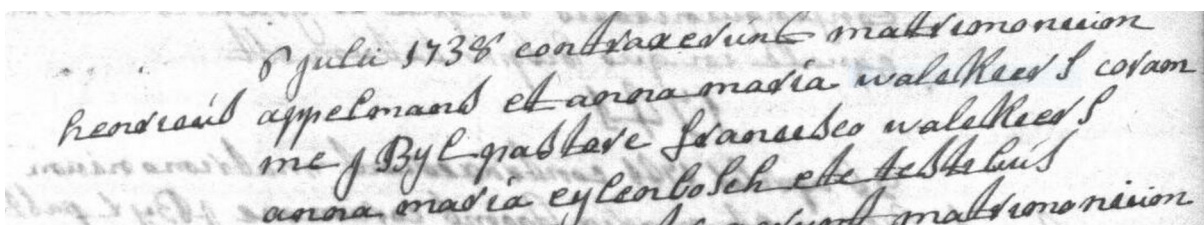 8 julii 1738 contraxerunt matrimoniuum
henricus appelmans et anna maria walckiers coram
me J Byl pastore francisco walckiers
anna maria eylenbosch etc testibus
matrimoniuum